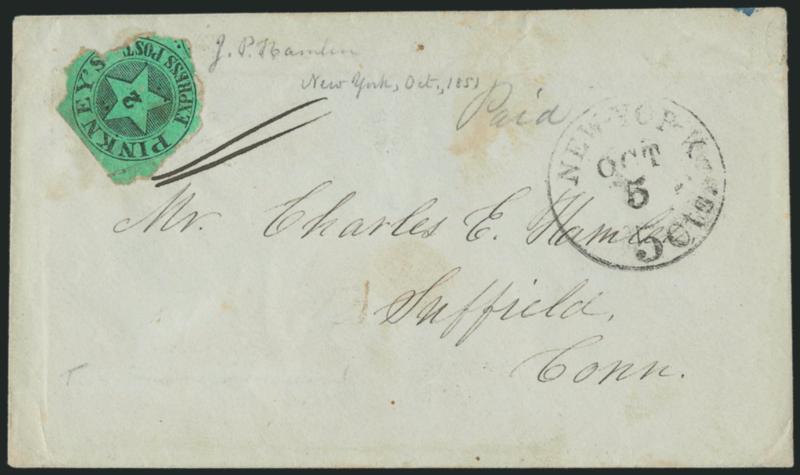 PINKNEY'S
EXPRESS POST
2
J. P. Hamlin
New York, Oct., 1851
Paid
NEW-YORK
OCT
5
5 Cts
Mr. Charles E. Hamlin
Suffield,
Conn.